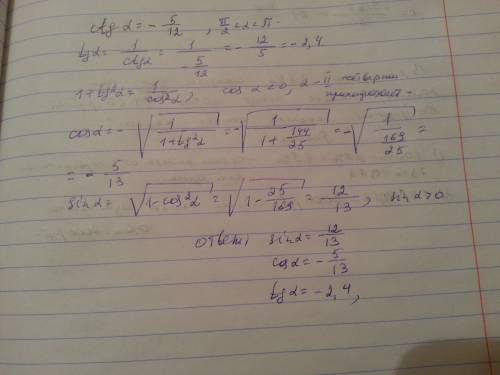 ctg α = - 5/12 , π/2 < α < π.
tg α = 1/ctg α = 1/(-5/12) = - 12/5 = -2,4
1+tg²α = 1/cos²α , cos α < 0, α - II четверти
cos α = -√(1/(1+tg²α)) = -√(1/(1+144/25)) = -√(1/(169/25)) =
= - 5/13
sin α = √(1-cos²α) = √(1-25/169) = 12/13 , sin α > 0
ответ: sin α = 12/13
cos α = - 5/13
tg α = -2,4,